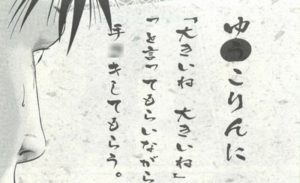 ゆ●こりんに
「大きいね 大きいね」
っと言ってもらいながら
手 キしてもらう。